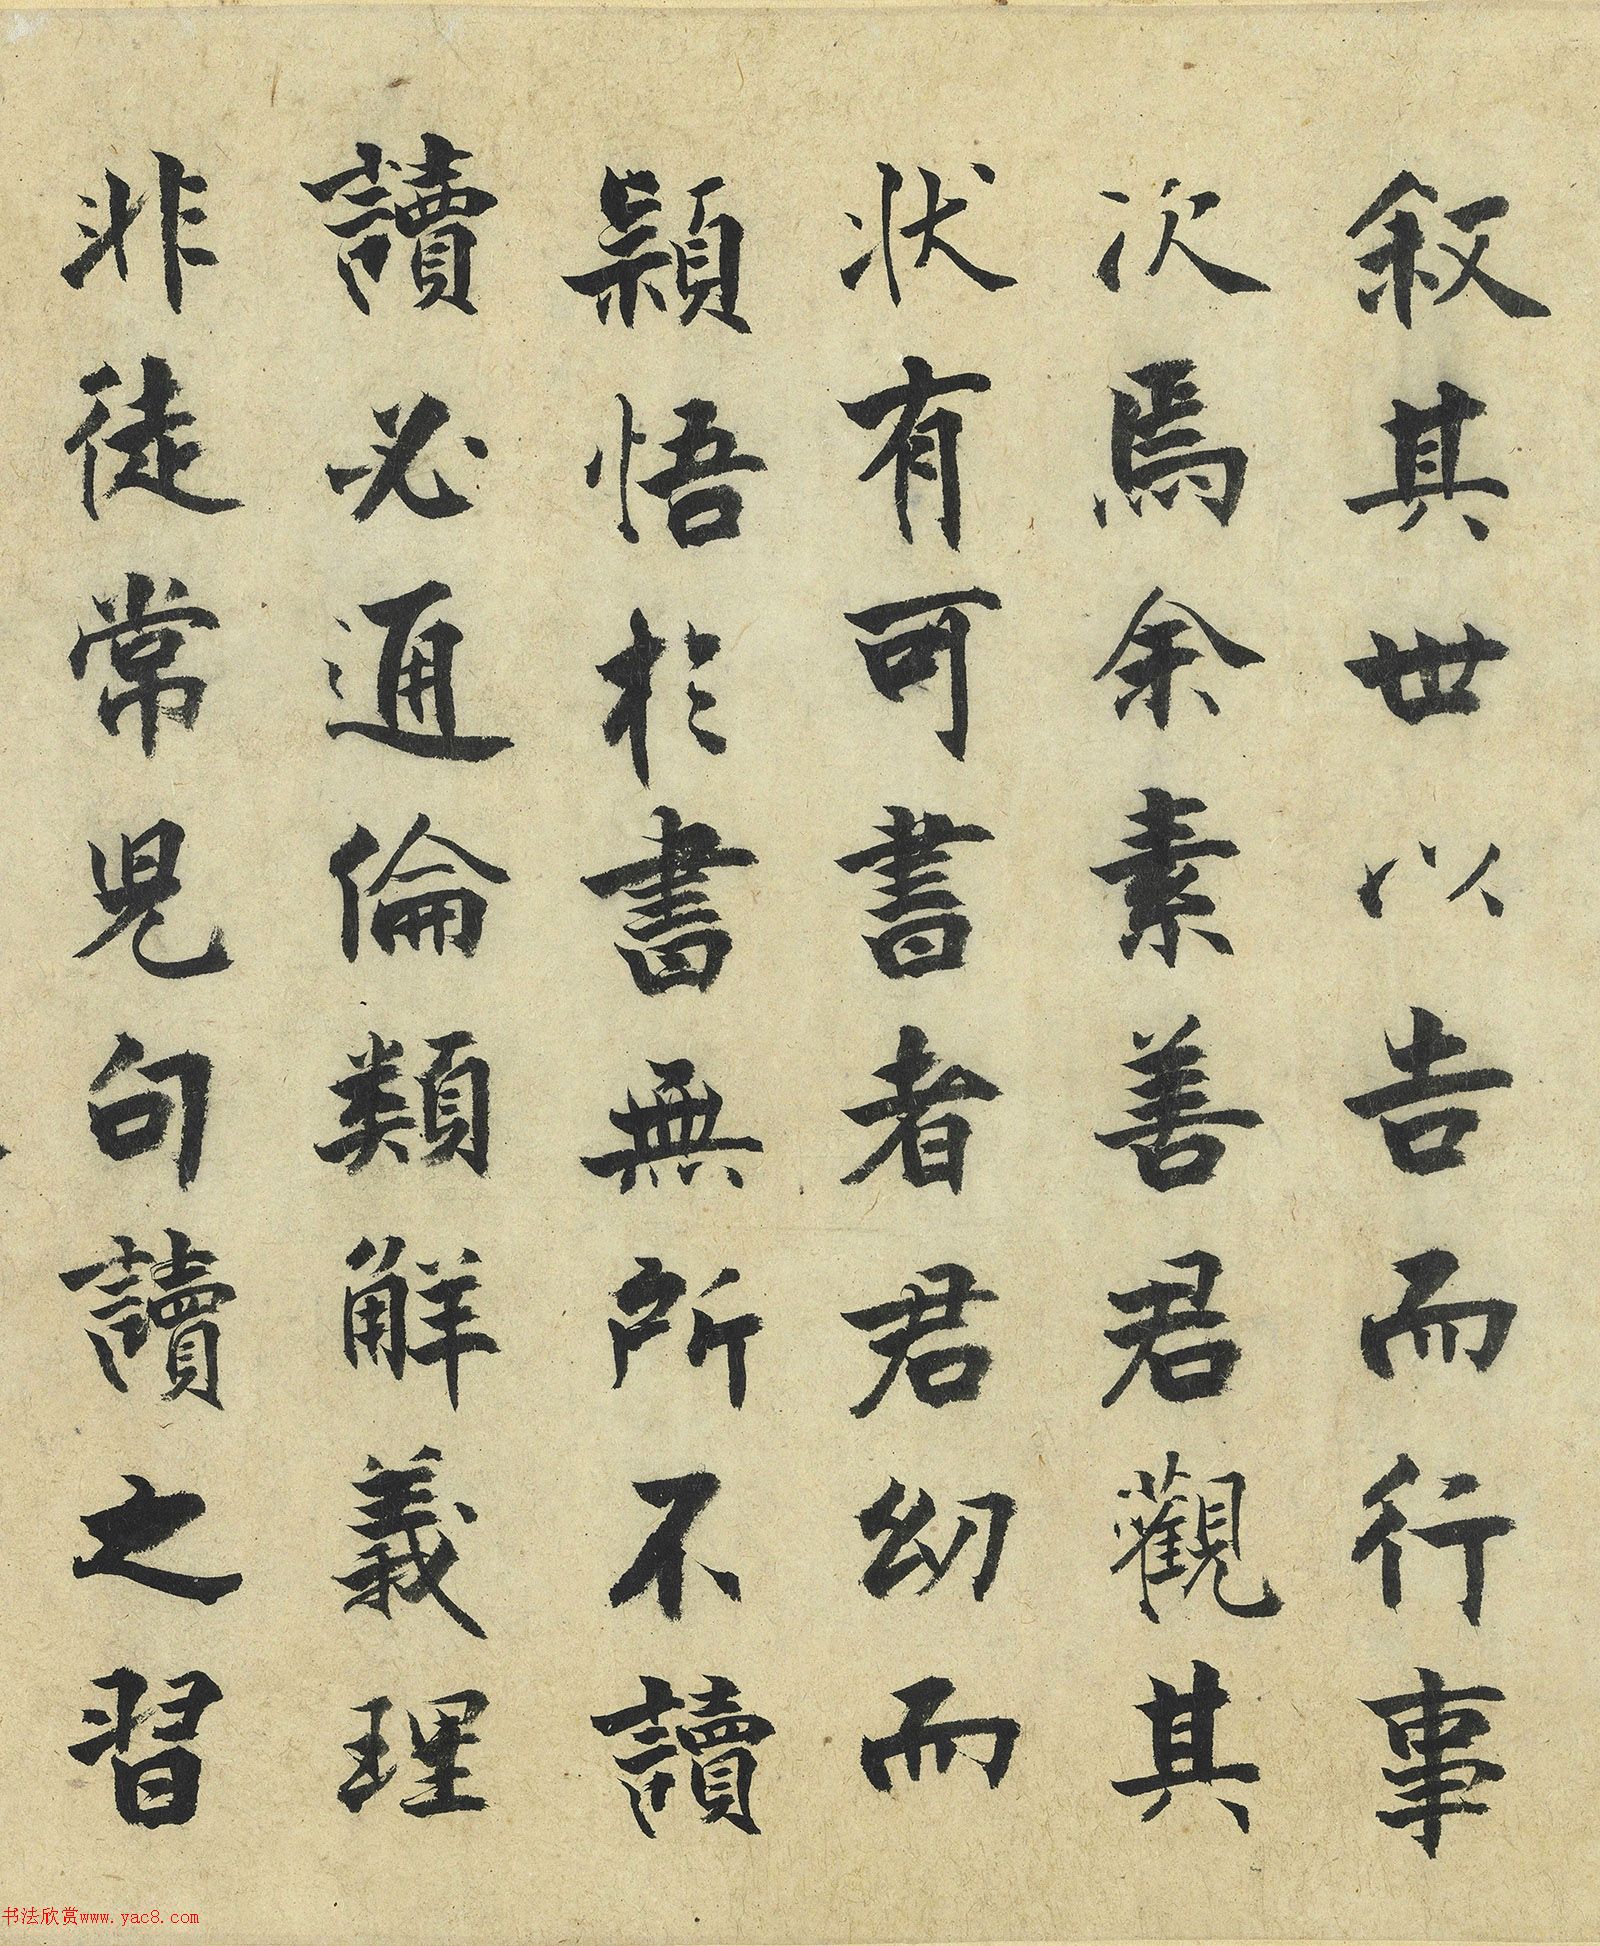 叙其世以告而行事
次焉余素善君觀其
狀有可書者君幼而
穎悟於書無所不讀
讀必通倫類解義理
非徒常兒句讀之習
书法欣赏www.yac8.com